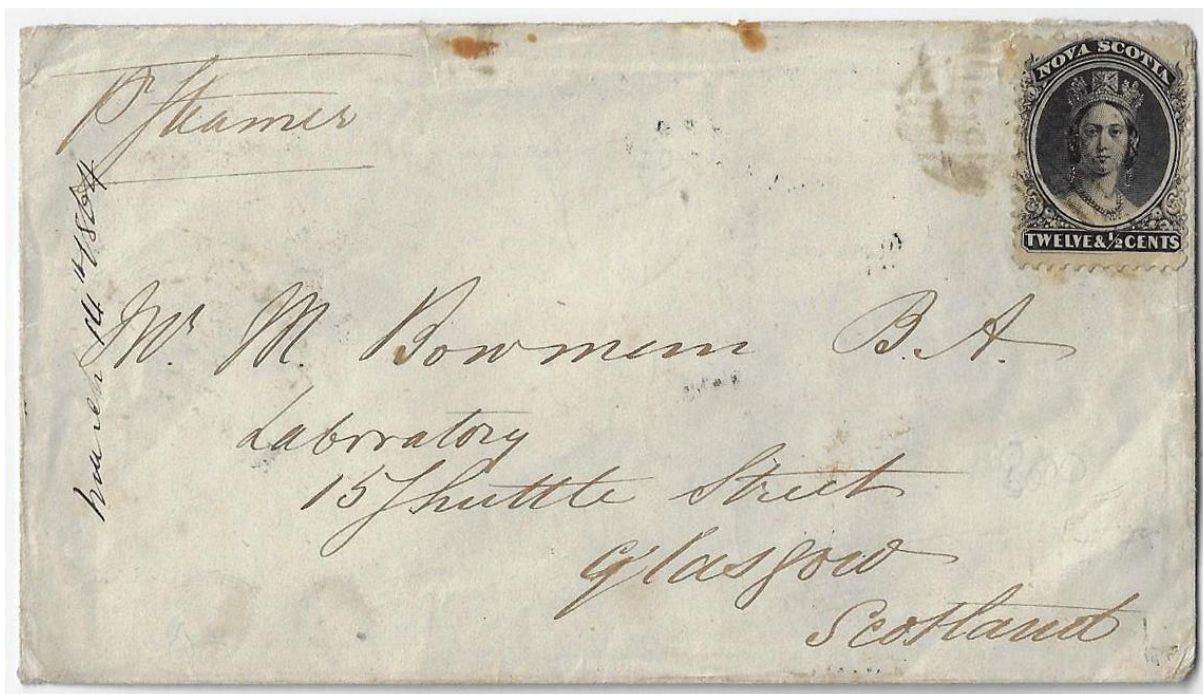 Pr Steamer
NOVA SCOTIA
TWELVE & ½ CENTS
March 14th 1864
Mr. M. Bowmem B.A.
Laboratory
15 Shuttle Street
Glasgow
Scotland